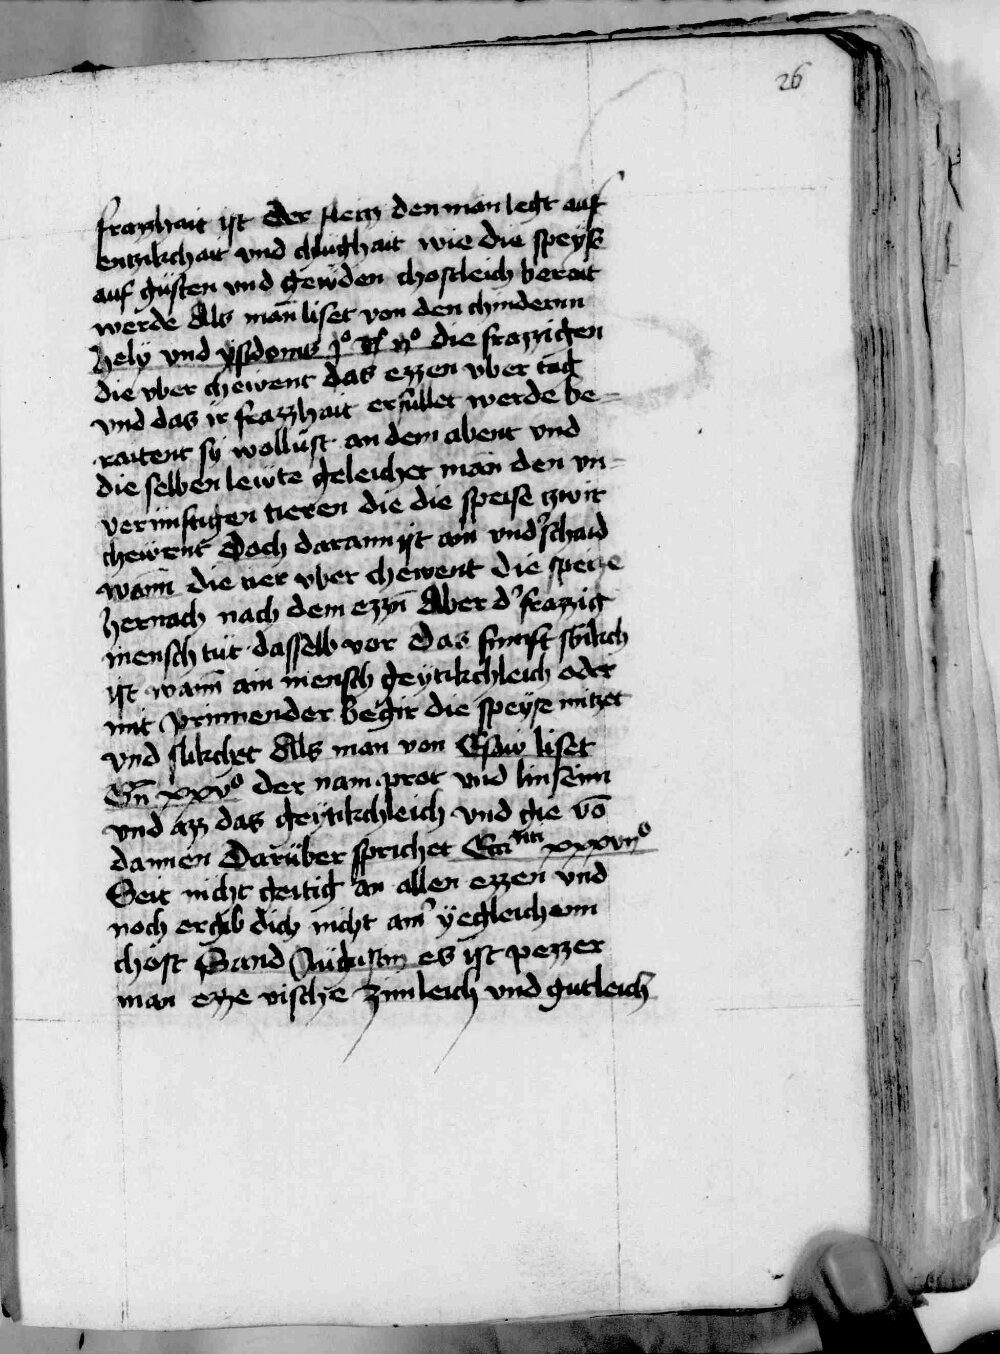 26
frazzhait ist der fleizz den man legt auf
entzikchait vnd chlughait wie die speyß
auf gusten vnd gewden chostleich berait
werde Als man̄ liset von den chindernn
hely vnd ysidorus die frazzigen
die vber chewent das ezzen vber tag
vnd das ir frazzhait erfüllet werde be=
raitent sy wollust an dem abent vnd
die selben lewte geleichet man den vn=
vernuftigen tieren die die speise zwir
chewent Doch darann ist ain vnd'schaid
wann̄ die tier vber chewent die speize
hernach nach dem ezzn̄ Aber d' frazzig
mensch tut dasselb vor Das fumft stukch
ist wann̄ ain mensch geytikchleich oder
mit prinnender begir die speyse nutzet
vnd slikchet Als man von Esaw liset
Gn̄ xxv° der nam prot vnd linseinn
vnd azz das geytikchleich vnd gie vō
dannen Darüber sprichet Ecc^tici xxxvij°
Seit nicht geitig an allen ezzen vnd
noch ergib dich nicht ain' yegleichenn
chost Sand Augustin es ist pezzer
man ezze vische zimleich vnd gutleich